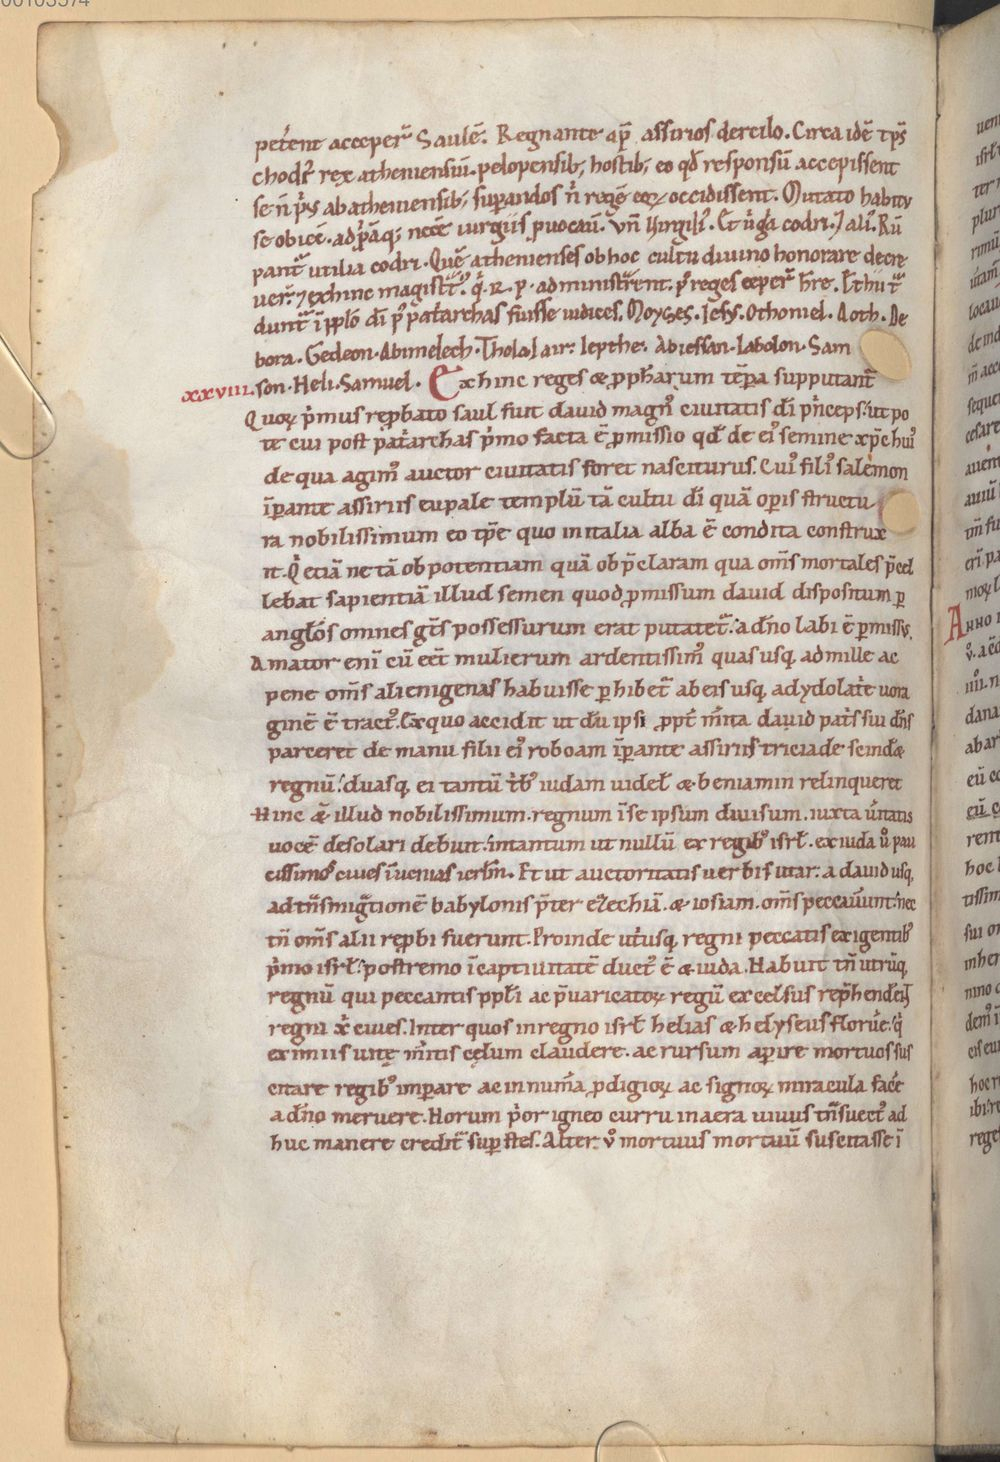 petent acceper̄ Saulē. Regnante ap̄ assirios dercilo. Circa idē tp̄s
chodr̄ rex atheniensiū. pelopensib; hostib; eo qd̄ responsū accepissent
se n̄ p̄s ab atheniensib; supandos n̄ regē eoꝝ occidissent. Mutato habitu
se obicē. ad p̄ aq; necē iurgiis puocaū. Vn̄ Virgili᷒. Et ur̄ga codri. Jali᷒. Rū
pant᷒ utilia codri. Quē athenienses ob hoc cultu diuino honorare decre
uer̄. ⁊ exhinc magist᷒. q̄. R. P. administrent. p̄ reges ceper̄ h̄re.
dunt᷒ ī pplō dī p᷒ pat̄archas fuisse iudices. Moyses. Iesus. Othoniel. Aoth. De
bora. Gedeon. Abimelech. Thola. Iair. Iepthe. Abiessan. Labdon. Sam
XXVIII. son. Heli. Samuel. Exhinc reges & ppharum tēpa supputant᷒
Quoꝝ p̄mus repbato saul fuit dauid magn᷒ ciuitatis dī p̄nceps. ut po
te cui post pat̄archas p̄mo facta ē pmissio qd̄ de ei᷒ semine xp̄c hui᷒
de qua agim᷒ auctor ciuitatis foret nasciturus. Cui᷒ fili᷒ salemon
īpante assiriis eupale templū tā cultu dī quā opis structu
ra nobilissimum eo tp̄e quo in italia alba ē condita construx
it. Q̄ etiā ne tā ob potentiam quā ob p̄claram qua om̄s mortales p̄cel
lebat sapientiā illud semen quod pmissum dauid dispositum p
anglōs omnes gt̄s possessurum erat putatet᷒. a dn̄o labi ē pmissus.
Amator enī cū eēt mulierum ardentissim᷒ quas usq; ad mille ac
pene om̄s alienigenas habuisse phibet᷒ ab eis usq; ad ydolat̄e uora
ginē ē tract᷒. Ex quo accidit ut dū ipsi ppt̄ m̄ita dauid pat̄s sui dn̄s
parceret de manu filii ei᷒ roboam īpante assiriis triciade scindæ
regnū. duasq; ei tantū t̄b᷒ iudam uidel̄ & beniamin relinqueret
Hinc & illud nobilissimum. regnum īse ipsum diuisum. iuxta ūitatis
uocē desolari debuit. intantum ut nullū ex regib᷒ isrl̄. ex iuda u᷒ pau
cissimos ciues īuenias ierlm̄. Et ut auctoritatis uerbis utar. a dauid usq;
ad tn̄smigtionē babylonis p̄ter ezechiā. & iosiam. om̄s peccauer̄unt. nec
tn̄ om̄s alii repbi fuerunt. Proinde ut̄usq; regni peccatis exigentib᷒
p̄mo isrl̄. postremo ī captiuitatē duct᷒ ē & iuda. Habuit tn̄ utrūq;
regnū qui peccantis ppl̄i ac p̄uaricatoꝝ regū excelsus rep̄henderet
regni x̄ ciues. Inter quos in regno isrl̄ helias & helyseus floruēr. q̄
eximiis uitę m̄itis cęlum claudere. ac rursum apire mortuos sus
citare regib᷒ impare ac innum̄a pdigioꝝ ac signoꝝ miracula facē
a dn̄o meruere. Horum p̄or igneo curru in aera uiuus tn̄suect᷒ ad
huc manere credit᷒ supstes. Alter u᷒ mortuus mortuū suscitasse ī